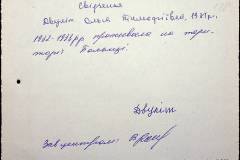 Свідчення
Двуліт Ольга Тимофіївна, 1927р.
1922-1933рр проживала на тери-
торії Польщі.
Двуліт
Зав центром: